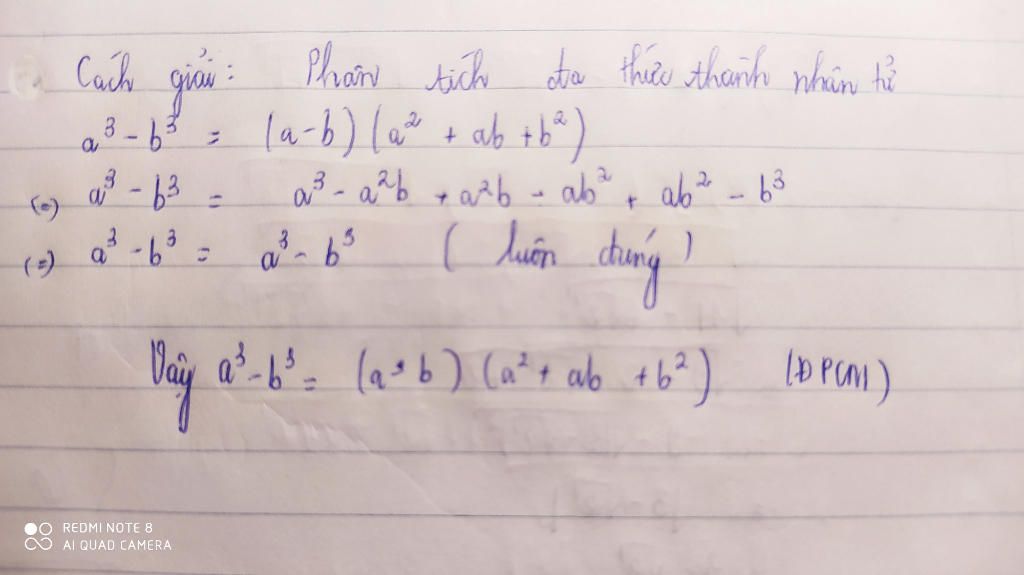 Cách giải: Phân tích đa thức thành nhân tử
a³ - b³ = (a-b)(a² + ab + b²)
(=) a³ - b³ = a³ - a²b + a²b - ab² + ab² - b³
(=) a³ - b³ = a³ - b³ (luôn đúng)
Vậy a³ - b³ = (a - b)(a² + ab + b²) (ĐPCM)
REDMI NOTE 8
AI QUAD CAMERA